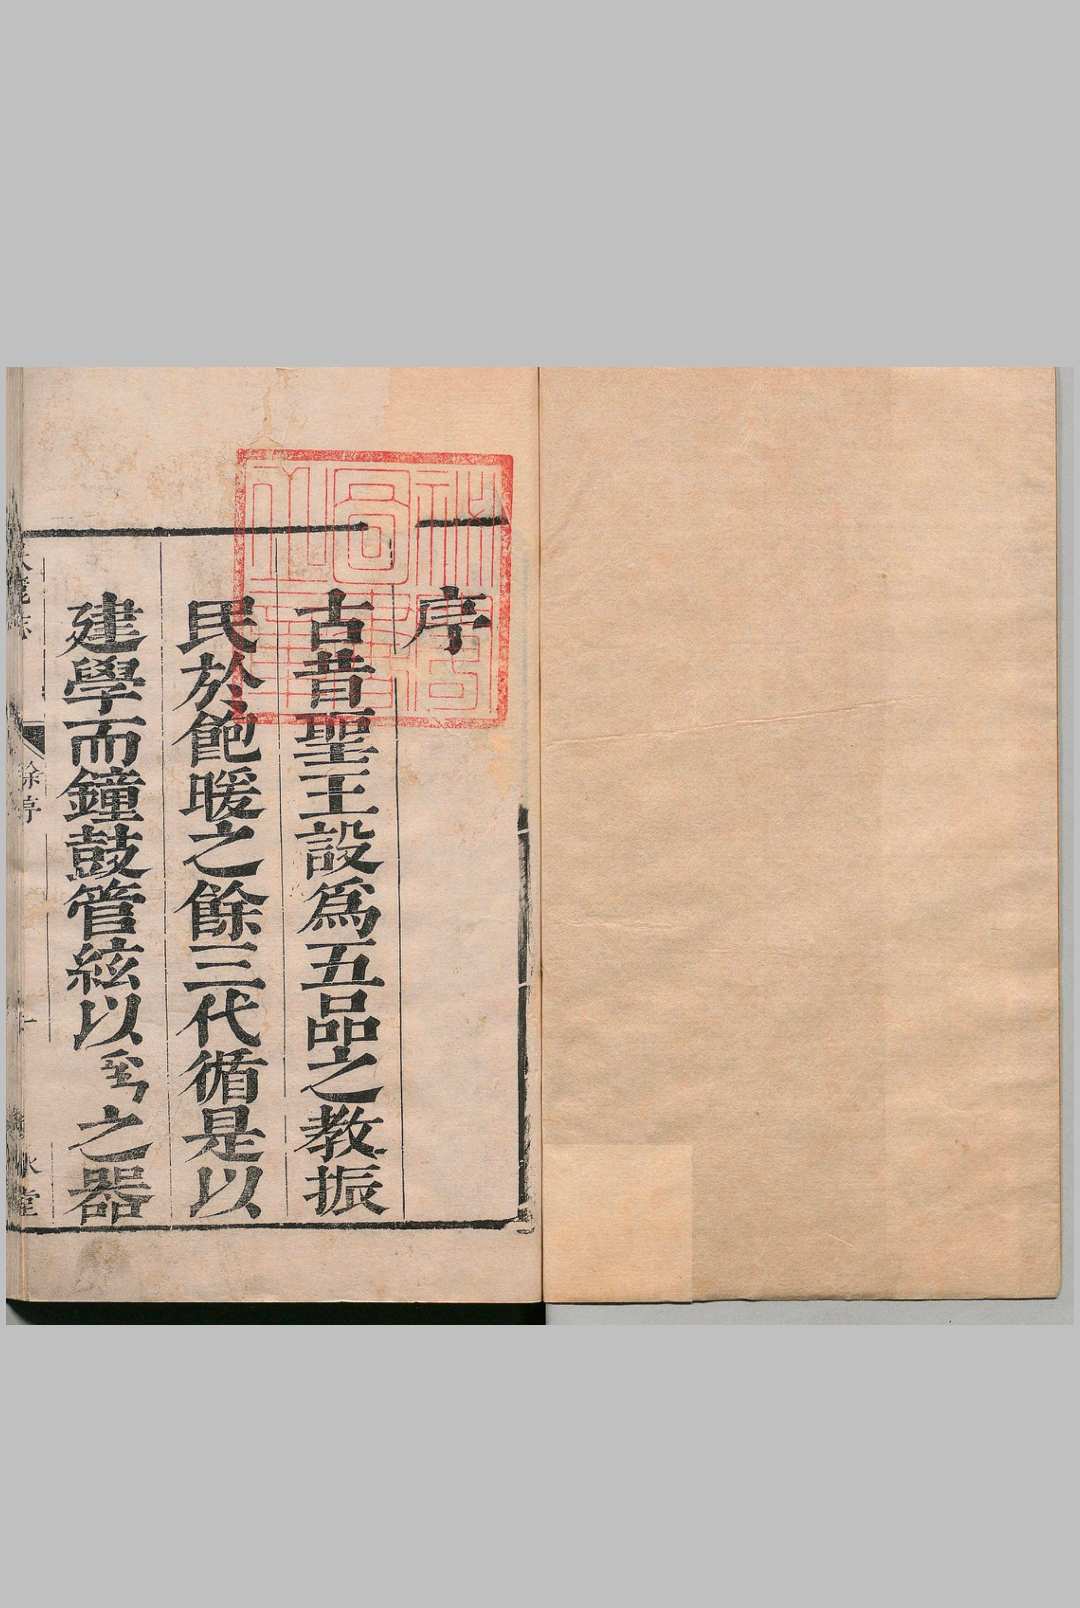 序
古昔聖王設爲五品之教振
民於飽暖之餘三代循是以
建學而鐘鼓管絃以至之器